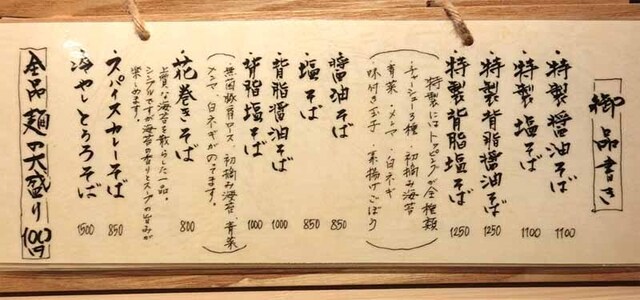 御品書き
・特製醤油そば 1100
・特製塩そば 1100
・特製背脂醤油そば 1250
・特製背脂塩そば 1250
特製にはトッピング全種類
・チャーシュー3種・初摘み海苔
・青菜・メンマ・白ネギ
・味付き玉子・素揚げごぼう
・醤油そば 850
・塩そば 850
・背脂醤油そば 1000
・背脂塩そば 1000
・無菌豚肩ロース、初摘み海苔、青菜
メンマ、白ネギがのってます。
・花巻きそば 800
上質な海苔を散らした一品
シンプルですが海苔の香りとスープの旨みが
楽しめます。
・スパイスカレーそば 850
・冷やしとろろそば 1500
全品 麺の大盛り 100円